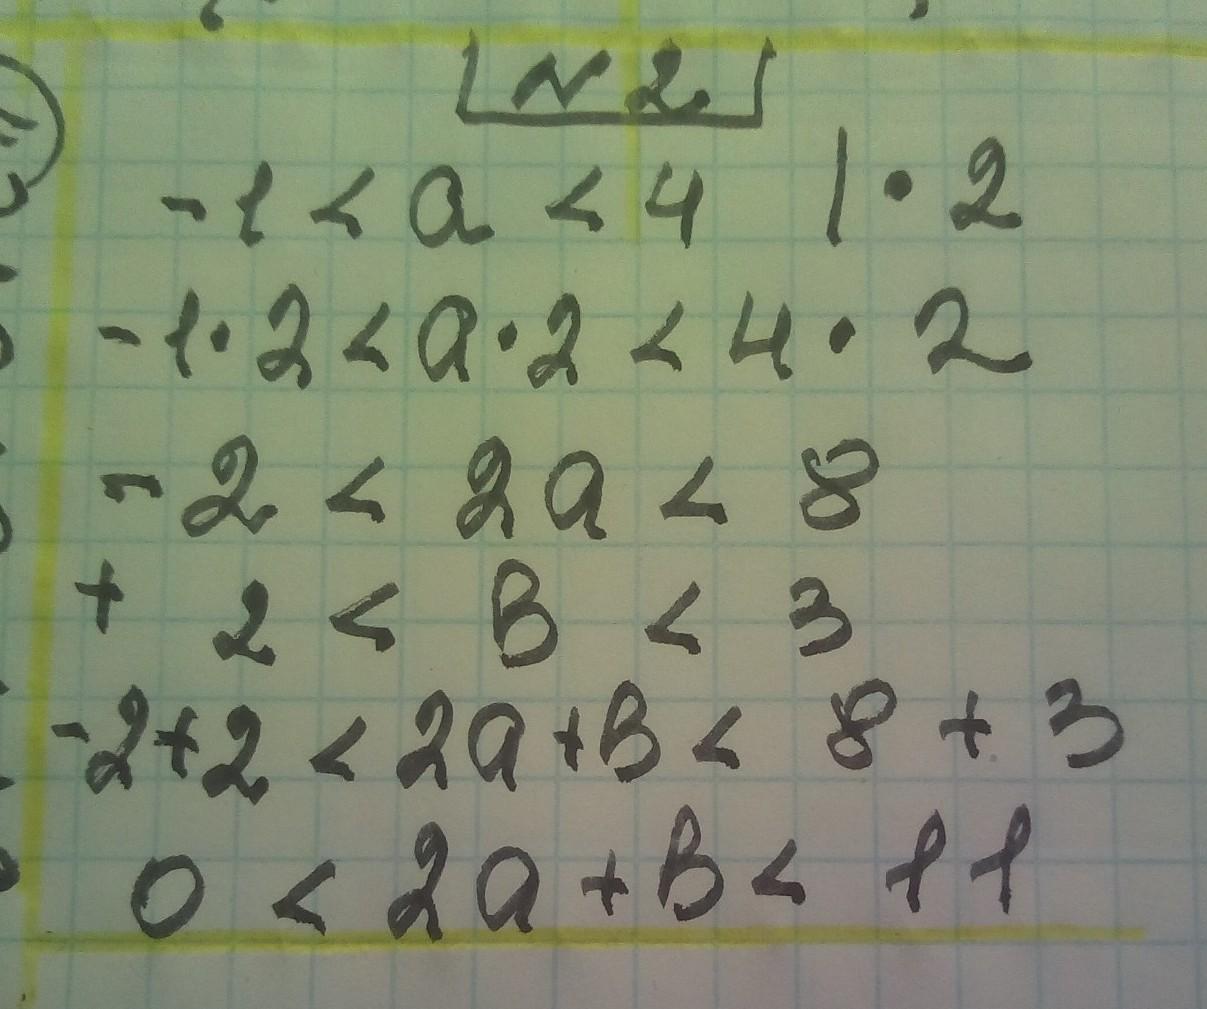 N 2.
-1 < a < 4 | · 2
-1 · 2 < a · 2 < 4 · 2
-2 < 2a < 8
+ 2 < B < 3
-2+2 < 2a+B < 8 + 3
0 < 2a + B < 11